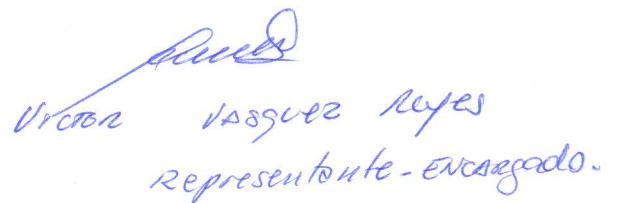 Victor Vasquez Reyes
Representante-Encargado.